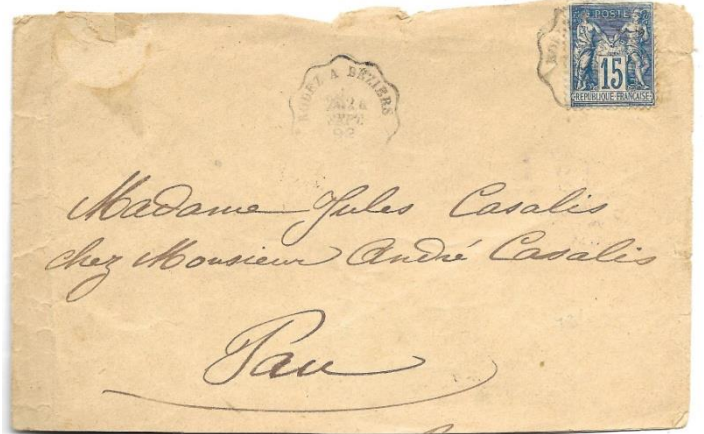 POSTE
15
REPUBLIQUE FRANÇAISE
RODEZ A BÉZIERS
26
SEPT
92
Madame Jules Casalis
chez Monsieur André Casalis
Pau